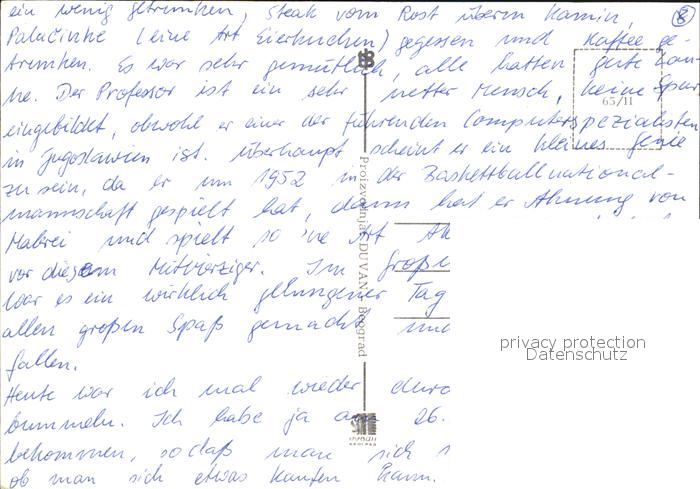 ein wenig getrunken, Steak vom Rost überm Kamin, 8
Palačinke (eine Art Eierkuchen) gegessen und Kaffee ge-
trunken. Es war sehr gemütlich, alle hatten gute Lau-
ne. Der Professor ist ein sehr netter Mensch, keine Spur
65/II
eingebildet, obwohl er einer der führenden Computerspezialisten
in Jugoslawien ist. Überhaupt scheint er ein kleines Genie
zu sein, da er um 1952 in der Basketballnational-
mannschaft gespielt hat, dann hat er Ahnung von
Malerei und spielt so 'ne Art
vor diesem Mitvierziger. Im
war es ein wirklich gelungener Tag
allen großen Spaß gemacht und
fallen.
Heute war ich mal wieder
bummeln. Ich habe ja am 26.
bekommen, sodaß man sich
ob man sich etwas kaufen kann.
Proizvodnja: DUVAN, Beograd
privacy protection
Datenschutz